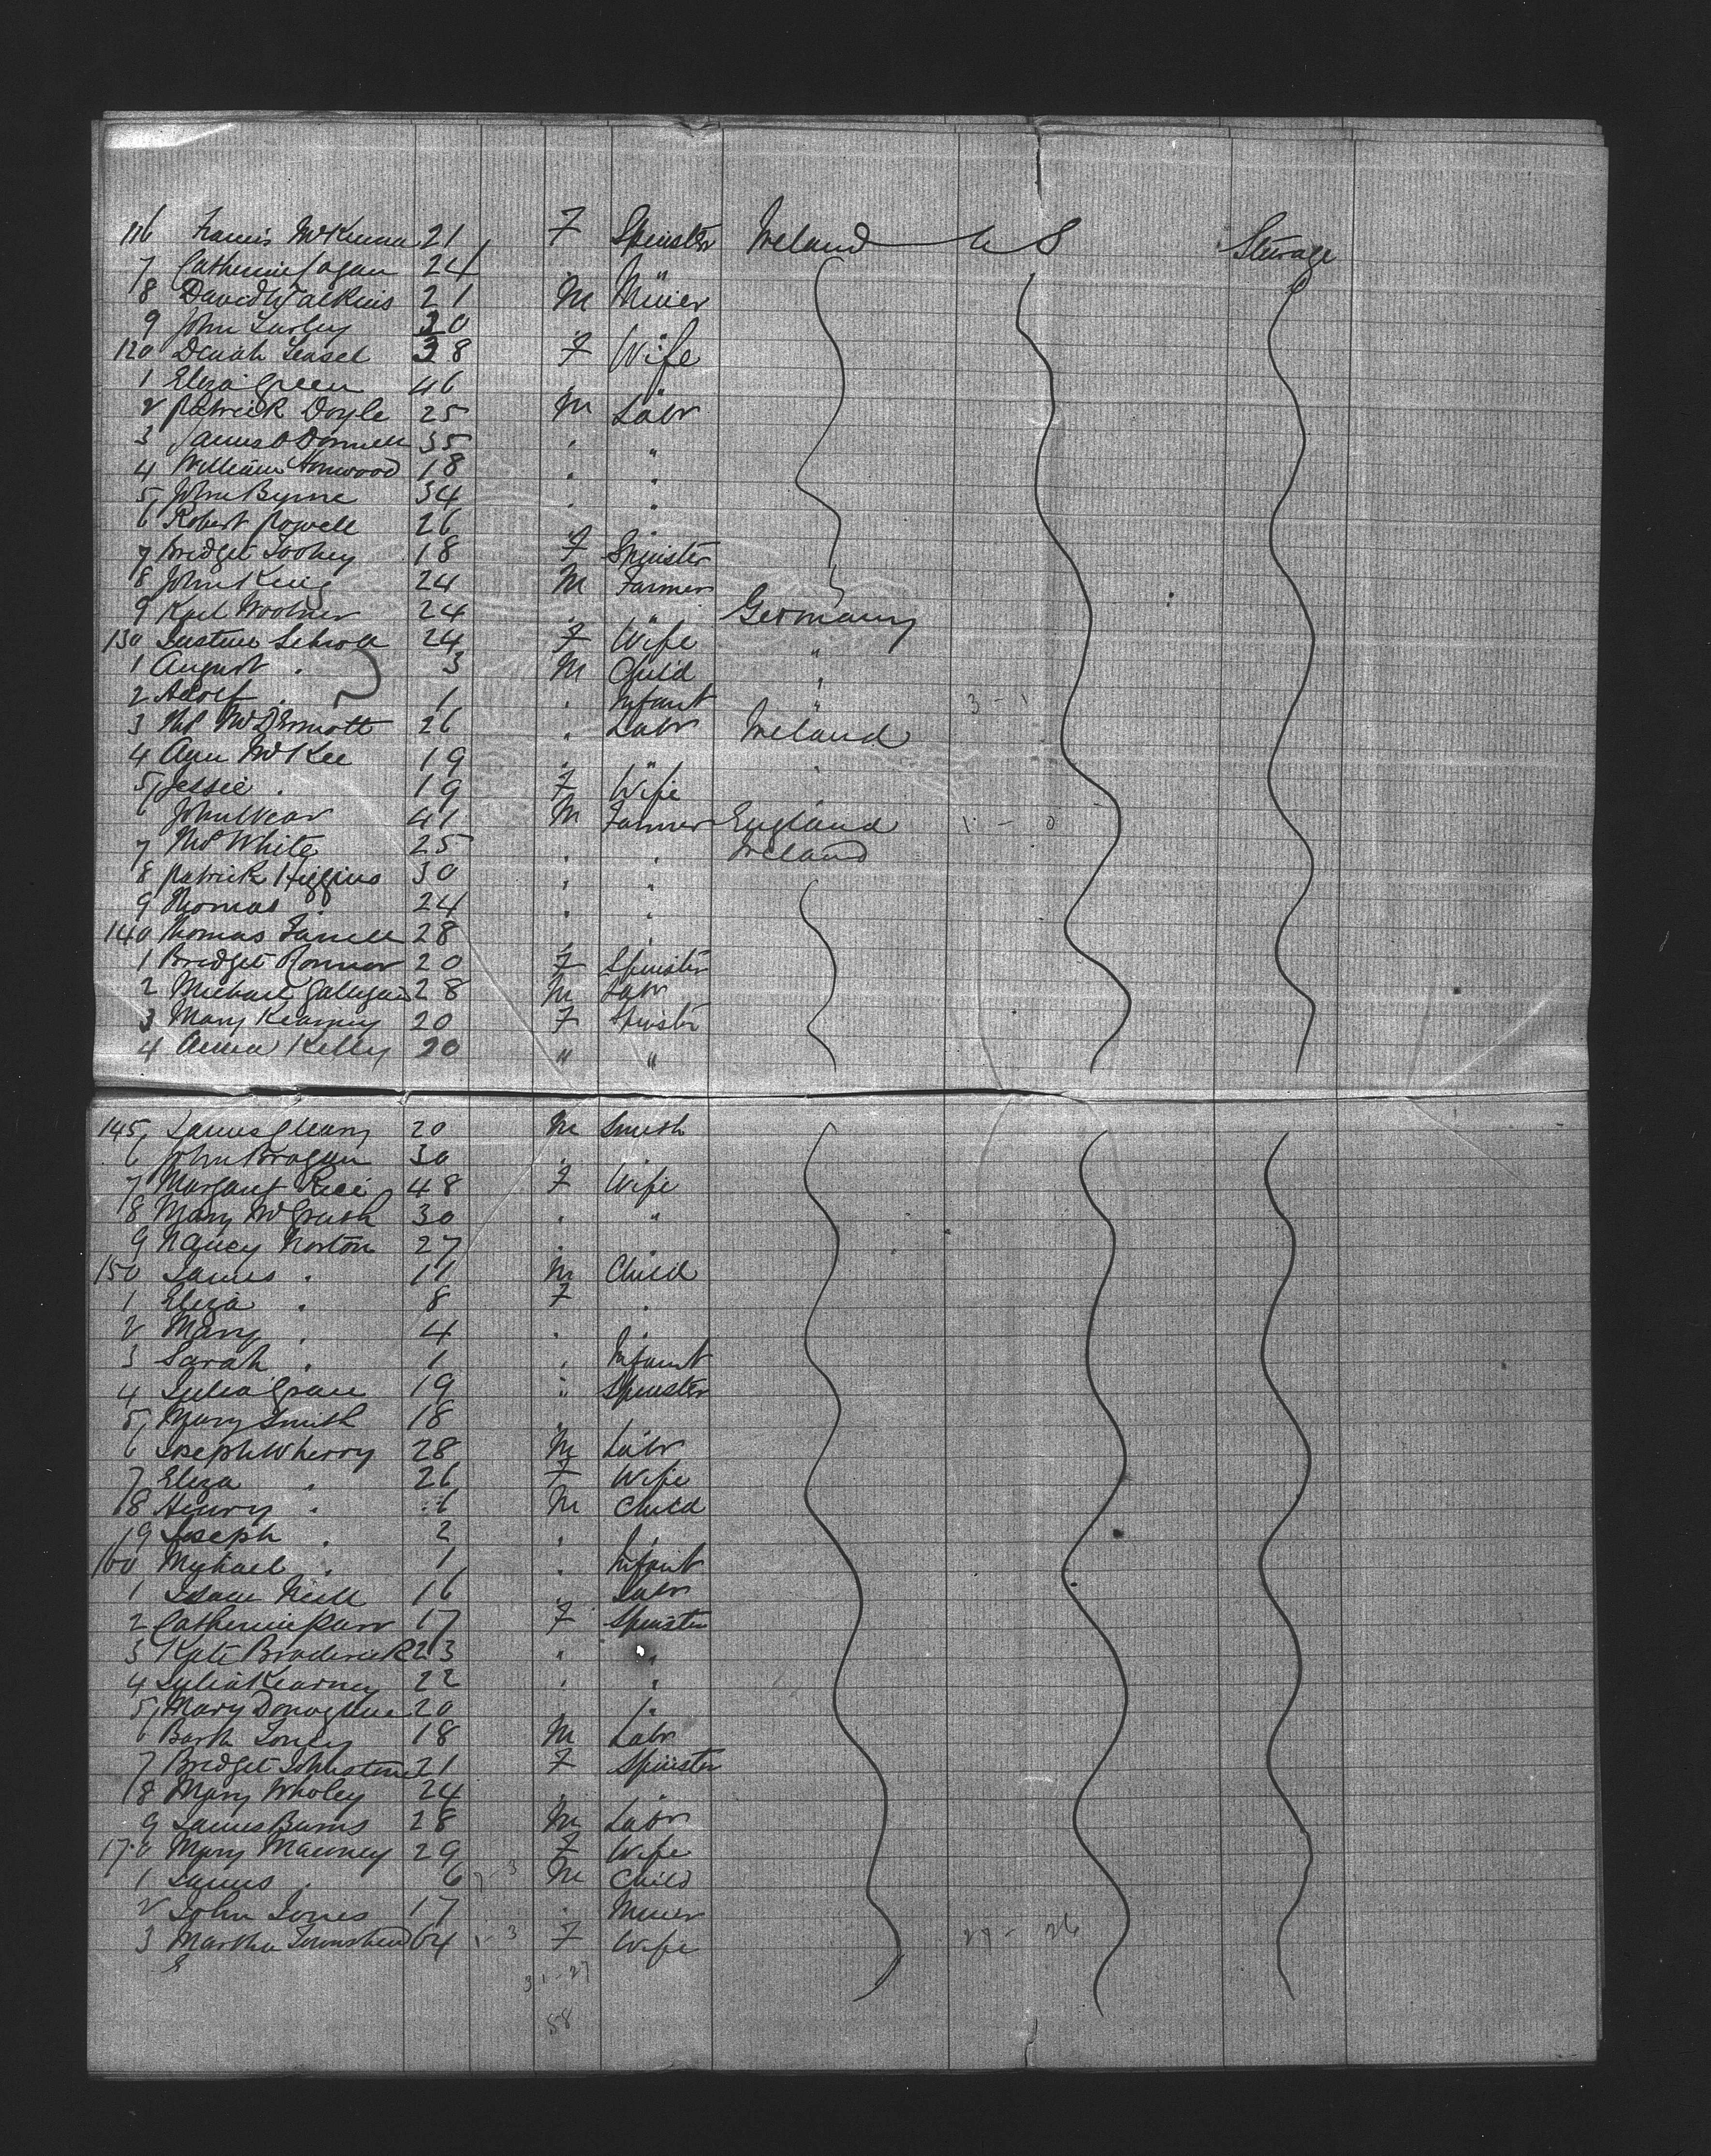 116 Francis McKenna 21 F Spinster Ireland U S Steerage
7 Catherine Fagan 24 " "
8 David Watkins 21 M Miner
9 John Turley 30 " "
120 Dinah Teasel 38 F Wife
1 Eliza Green 46 " "
2 Patrick Doyle 25 M Labr
3 James O Donnell 35 " "
4 William Honwood 18 " "
5 John Byrne 34 " "
6 Robert Powell 26 " "
7 Bridget Toohey 18 F Spinster
8 John King 24 M Farmer
9 Karl Woolner 24 " " Germany
130 Justine Schroll 24 F Wife "
1 August " 3 M Child "
2 Adolf " 1 " Infant " 3 - 1
3 McDermott 26 " Labr Ireland
4 Ann McKee 19 " " "
5 Jessie " 19 F Wife
6 John Wear 41 M Farmer England 1 - 0
7 White 25 " " Ireland
8 Patrick Higgins 30 " "
9 Thomas " 24 " "
140 Thomas Farrell 28 " "
1 Bridget Connor 20 F Spinster
2 Michael 28 M Labr
3 Mary Kearney 20 F Spinster
4 Anna Kelly 20 " "
145 James Cleary 20 M Smith
6 John Brogan 30 " "
7 Margaret Rice 48 F Wife
8 Mary McGrath 30 " "
9 Nancy Norton 27 " "
150 James " 11 M Child
1 Eliza " 8 F "
2 Mary " 4 " "
3 Sarah " 1 " Infant
4 Julia Grace 19 " Spinster
5 Mary Smith 18 " "
6 Joseph Wherry 28 M Labr
7 Eliza " 26 F Wife
8 Henry " 6 M Child
9 Joseph " 2 " "
160 Michael " 1 " Infant
1 Isaac Neill 16 " Labr
2 Catherine Parr 17 F Spinster
3 Kate Broderick 23 " "
4 Julia Kearney 22 " "
5 Mary Donaghue 20 " "
6 Barth 18 M Labr
7 Bridget Johnston 21 F Spinster
8 Mary Wholey 24 " "
9 James Burns 28 M Labr
170 Mary Mawney 29 F Wife
1 James " 6 M Child
2 John Jones 17 " Miner
3 Martha Townshend 64 1 - 3 F Wife 27 - 26
31 - 27
58